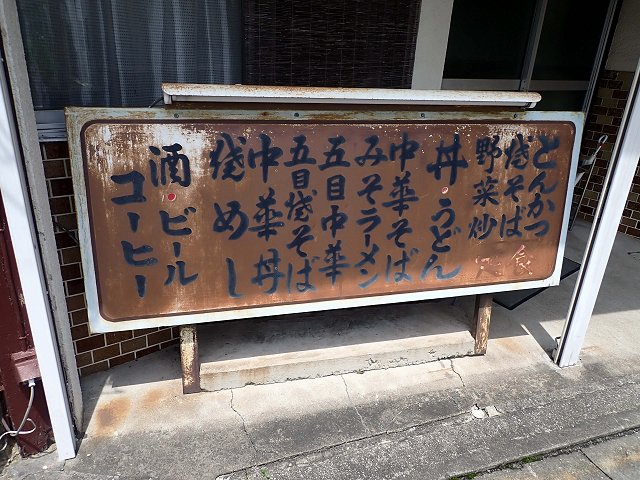 とんかつ
焼そば
野菜炒
定食
丼うどん
中華そば
みそラーメン
五目中華
五目焼そば
中華丼
焼めし
酒ビール
コーヒー